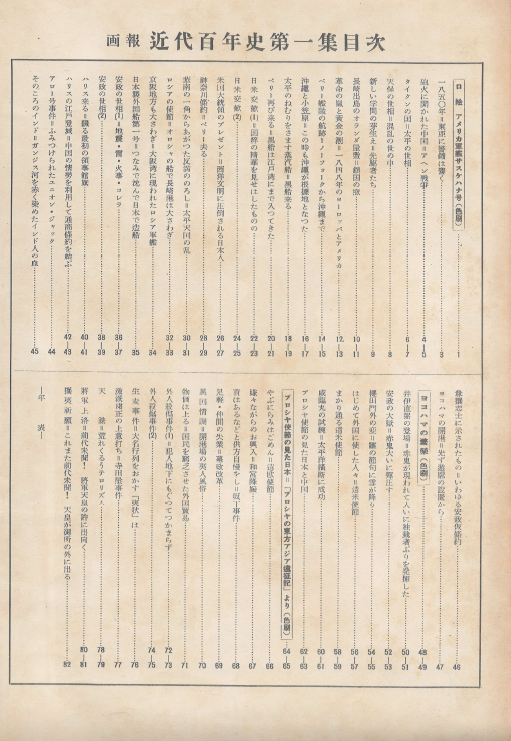 画報 近代百年史第一集目次
口絵 アメリカ軍艦サスケハナ号(色刷)……1
一八五〇年=東亜に警鐘は響く……3
砲火に開かれた中国=アヘン戦争……4—5
タイクンの国=太平の世相……6—7
天保の世相=混乱の世の中……8
新しい学問の芽生え=先駆者たち……9
長崎出島のオランダ屋敷=鎖国の窓……10—11
革命の嵐と黄金の潮=一八四八年のヨーロッパとアメリカ……12—13
ペリー艦隊の航跡=ノーフォークから沖縄まで……14—15
沖縄と小笠原=この時も沖縄が根拠地となった……16—17
太平のねむりをさます蒸汽船=黒船来る……18—19
ペリー再び来る=黒船は江戸湾にまで入つてきた……20—21
日米交歓(1)=因襲の精華を見せはしたものの……22—23
日米交歓(2)……24—25
米国大統領のプレゼント=西洋文明に圧倒される日本人……26—27
神奈川條約=ペリー去る……28—29
紫南の一角からあがつた反清ののろし=太平天国の乱……30—31
ロシアの使節=オロシャの船で長崎港は大さわぎ……32—33
京阪地方も大さわぎ=大阪湾に現われたロシア軍艦……34
日本醸外国船第一号=つなみで沈んで日本で造船……35
安政の世相(1)=地震・雷・火事・コレラ……36—37
安政の世相(2)……38—39
ハリス来る=翻る最初の領事館旗……40—41
ハリスの江戸登城=中国の情勢を利用して通商條約を結ぶ……42—43
アロー号事件=ふみつけられたユニオン・ジャック……44
そのころのインド=ガンジス河を赤く染めたインド人の血……45
愈攘志士に示されたもの=いわゆる安政仮條約……46
ヨコハマの開港=先ず遊廓の設置から……47
ヨコハマの繁榮(色刷)……48—49
井伊直弼の登場=赤鬼が現われて大いに独裁者ぶりを発揮した……50—51
安政の大獄=赤鬼大いに彈圧す……52—53
櫻田門外の変=雛の節句に雪が降る……54—55
はじめて外国に使した人々=遣米使節……56—57
まかり通る遣米使節……58—59
咸臨丸の試煉=太平洋横断に成功……60—61
プロシヤ使節の見た日本と中国……62—63
プロシヤ使節の見た日本=「プロシヤの東方アジア遠征記」より(色刷)……64—65
やぶにらみはごめん=遣欧使節……66
嫌々ながらのお輿入=和宮降嫁……67
首はあるなどと供方自慢をし=坂下事件……68
足軽・仲間の失業=幕政改革……69
異国情調=開港場の異人風俗……70
物価は上る=国民を驚乏させた外国貿易……71
外人殺傷事件(1)=犯人地下にもぐつてつかまらず……72—73
外人殺傷事件(2)……74—75
生麦事件=大名行列をおかす「夷狄」は……76
過激派粛正の上意打ち=寺田屋事件……77
天誅=荒れくるうテロリズム……78—79
將軍上洛=前代未聞! 將軍天皇の許に出向く……80—81
攘夷祈願=これまた前代未聞! 天皇が御所の外に出る……82
年表